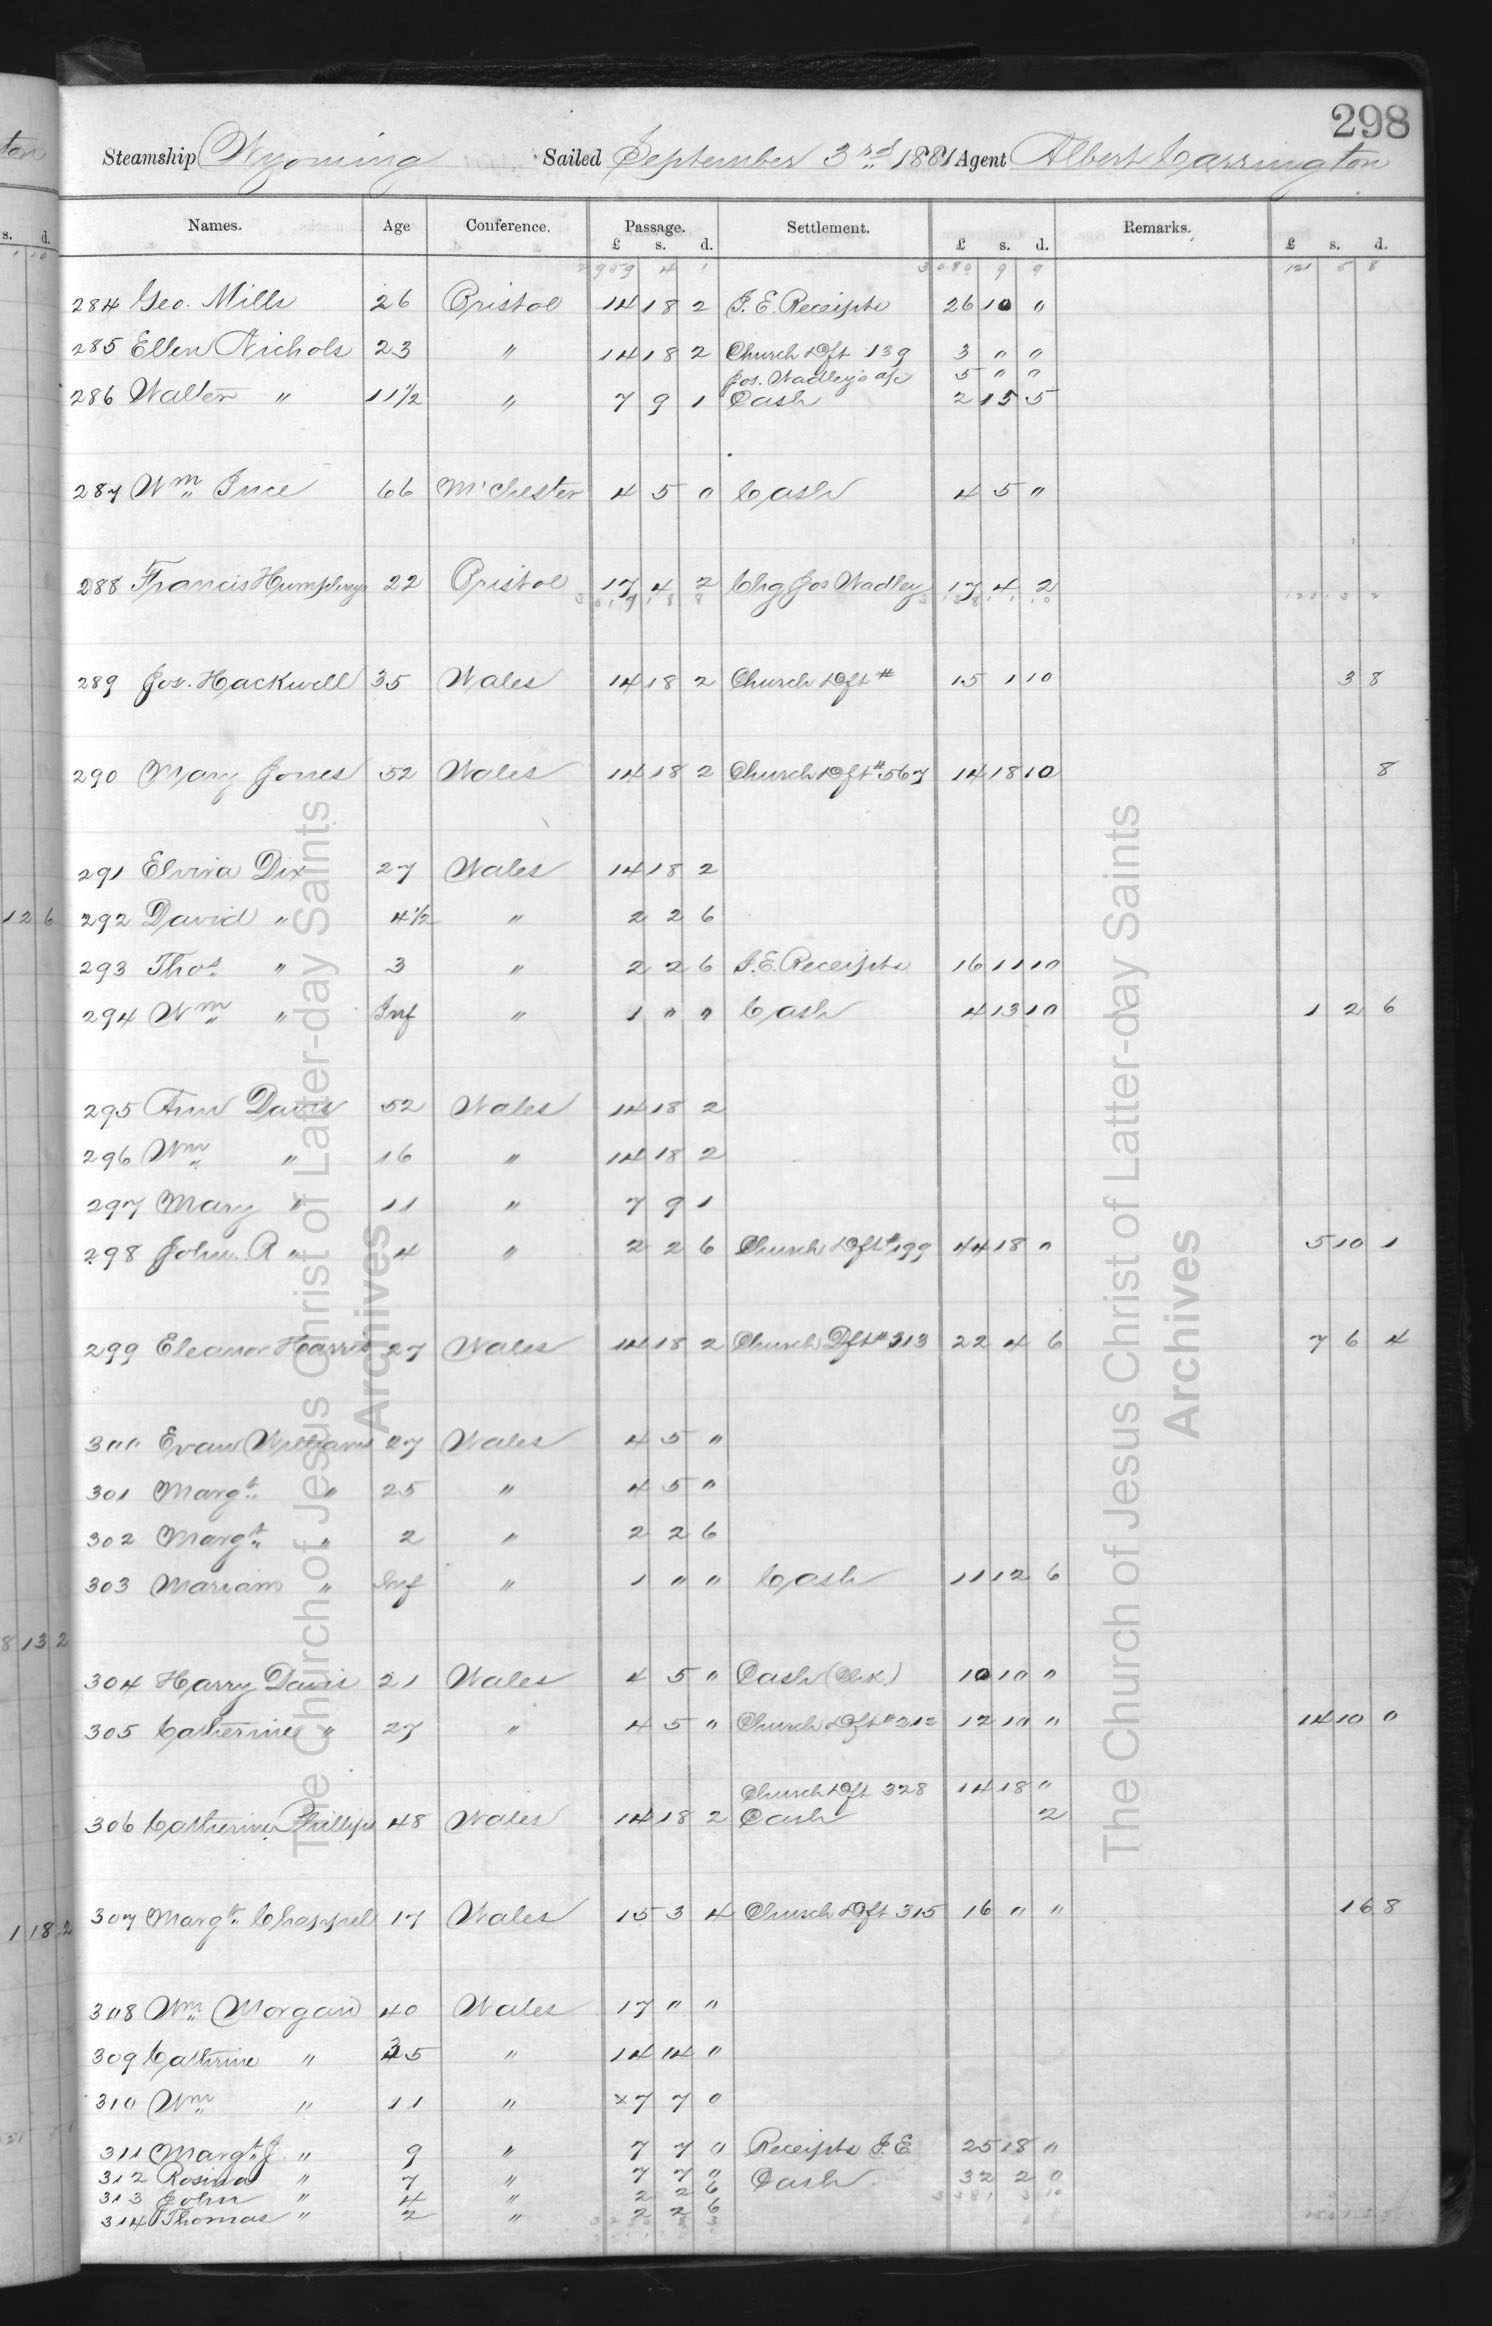 298
Steamship Wyoming Sailed September 3rd 1881 Agent Albert Carrington
Names. Age Conference. Passage. Settlement. Remarks.
£ s. d. £ s. d. £ s. d.
2959 4 1 3080 9 9 121 5 8
284 Geo. Mills 26 Bristol 14 18 2 I. E. Receipts 26 10 "
285 Ellen Nichols 23 " 14 18 2 Church Dft 139 3 " "
Jos. Wadley's a/c 5 " "
286 Walter " 11½ " 7 9 1 Cash 2 15 5
287 Wm Ince 66 M'Chester 4 5 0 Cash 4 5 "
288 Francis Humphreys 22 Bristol 17 4 2 Chg Jos Wadley 17 4 2
289 Jos. Hackwell 35 Wales 14 18 2 Church Dft # 15 1 10 3 8
290 Mary Jones 52 Wales 14 18 2 Church Dft # 567 14 18 10 8
291 Elvira Dix 27 Wales 14 18 2
292 David " 4½ " 2 2 6
293 Thos " 3 " 2 2 6 I. E. Receipts 16 11 10
294 Wm " Inf " 1 " " Cash 4 13 10 1 2 6
295 Ann Davis 52 Wales 14 18 2
296 Wm " 16 " 14 18 2
297 Mary " 11 " 7 9 1
298 John R " 4 " 2 2 6 Church Dft # 199 44 18 " 5 10 1
299 Eleanor Harris 27 Wales 14 18 2 Church Dft # 313 22 4 6 7 6 4
300 Evan Williams 27 Wales 4 5 "
301 Margt " 25 " 4 5 "
302 Margt " 2 " 2 2 6
303 Mariam " Inf " 1 " " Cash 11 12 6
304 Harry Davis 21 Wales 4 5 " Cash (Chk) 10 10 "
305 Catherine " 27 " 4 5 " Church Dft # 212 12 10 " 14 10 0
Church Dft 328 14 18 "
306 Catherine Phillips 48 Wales 14 18 2 Cash 2
307 Margt Chappel 17 Wales 15 3 4 Church Dft 315 16 " " 16 8
308 Wm Morgan 40 Wales 17 " "
309 Cathrine " 35 " 14 14 "
310 Wm " 11 " x 7 7 0
311 Margt J. " 9 " 7 7 0 Receipts I. E 25 18 "
312 Rosina " 7 " 7 7 " Cash 32 2 0
313 John " 4 " 2 2 6
314 Thomas " 2 " 2 2 6
The Church of Jesus Christ of Latter-day Saints
Archives
The Church of Jesus Christ of Latter-day Saints
Archives
ton
s. d.
1 10
1 2 6
8 13 2
1 18 2